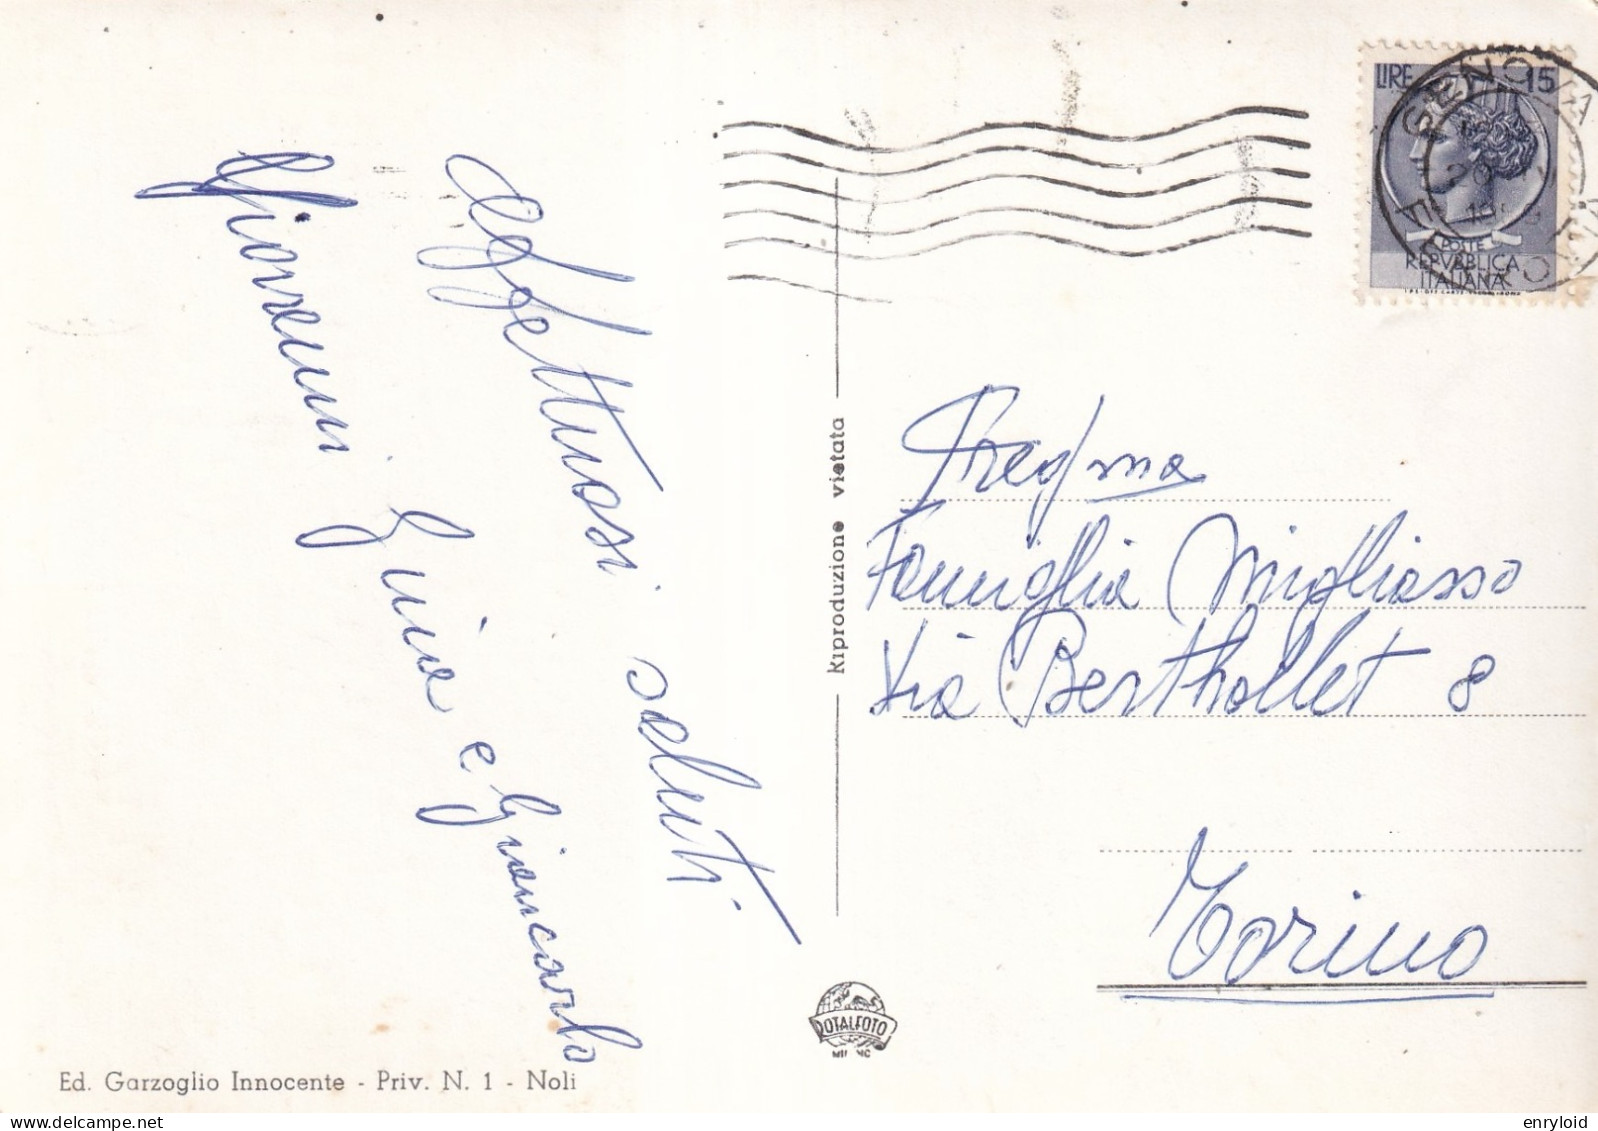 Affettuosi saluti
Giovanni Gina e Giancarlo
Ed. Garzoglio Innocente - Priv. N. 1 - Noli
Riproduzione vietata
ROTALFOTO
MILANO
LIRE 15
POSTE
REPVBBLICA
ITALIANA
GENOVA
Preg/ma
Famiglia Migliasso
Via Berthollet 8
Torino
enryloid